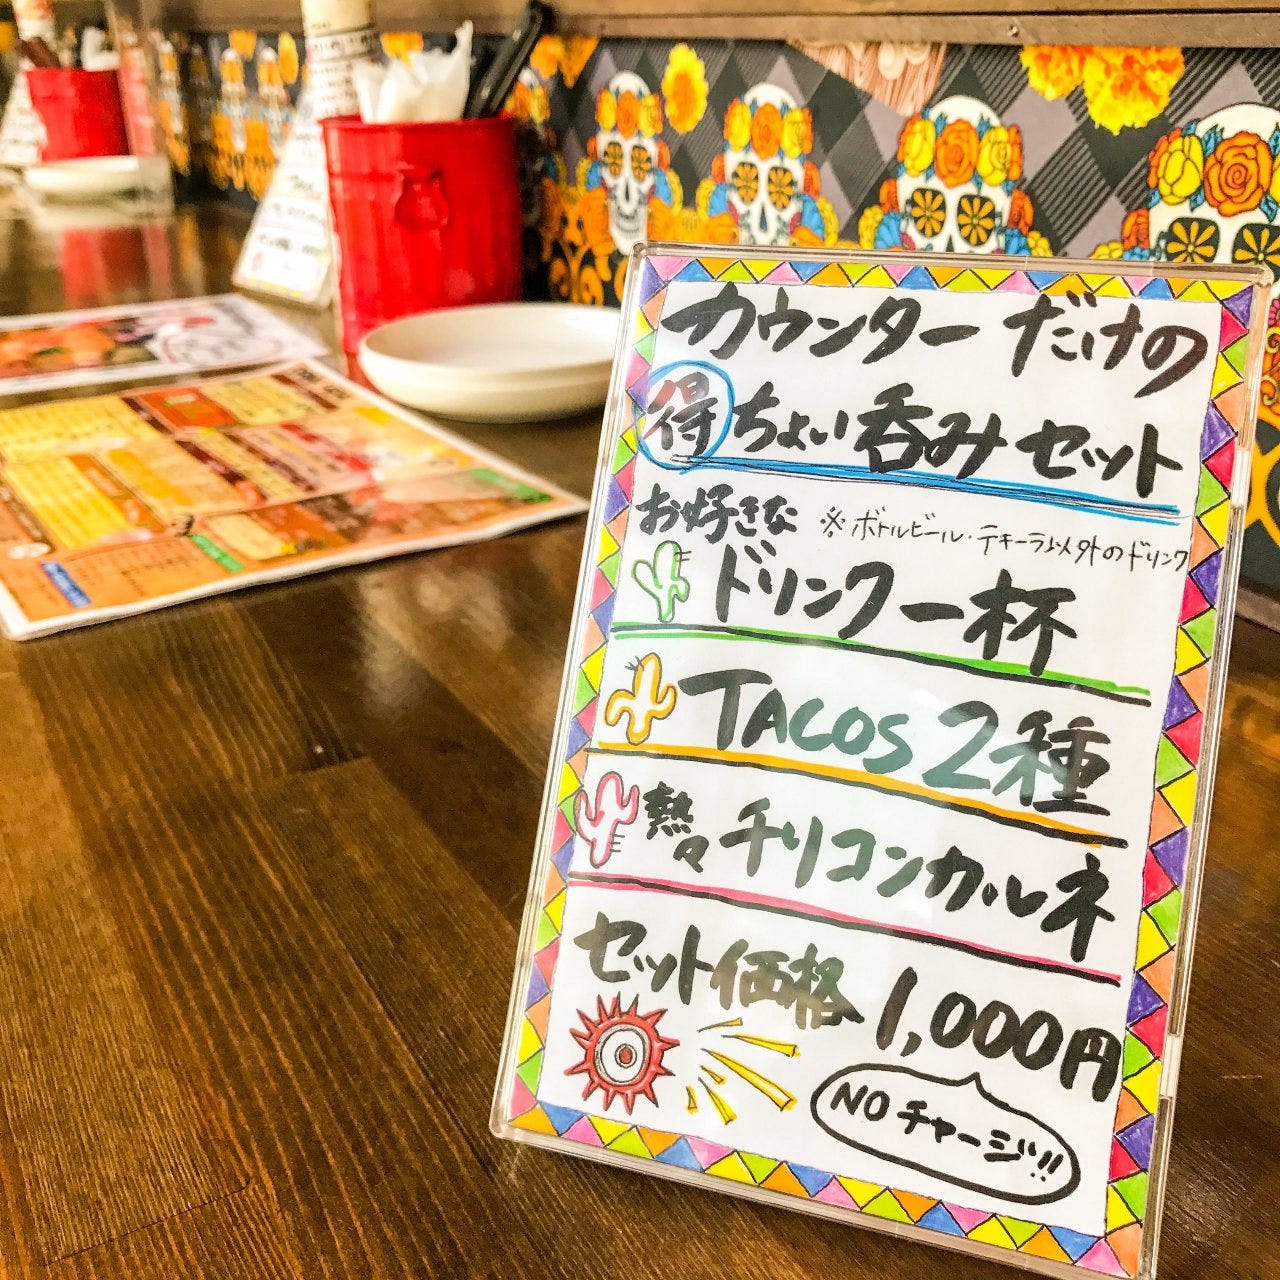 カウンターだけの
得ちょい呑みセット
お好きな ※ボトルビール・テキーラ以外のドリンク
ドリンク一杯
TACOS 2種
熱々チリコンカルネ
セット価格 1,000円
NO チャージ!!